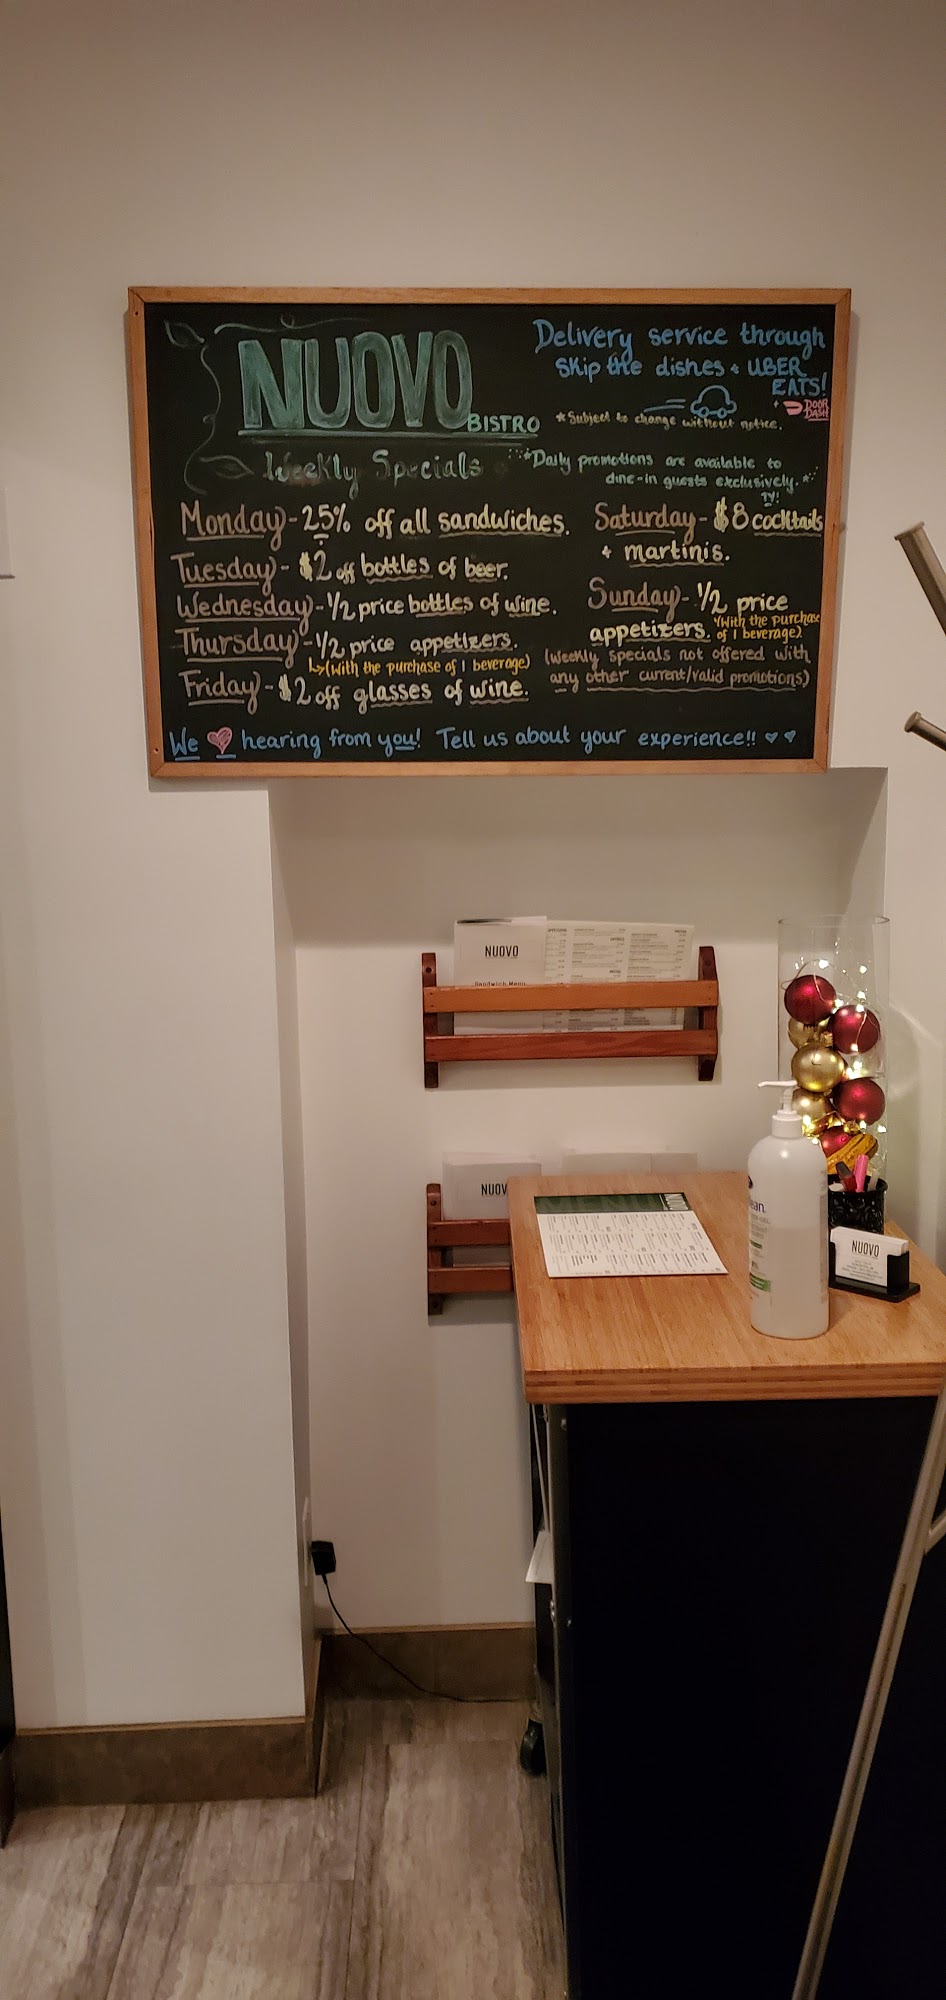 NUOVO
BISTRO
Weekly Specials
Delivery service through
Skip the dishes + UBER
EATS!
+ DOOR
DASH
*Subject to change without notice.
*Daily promotions are available to
dine-in guests exclusively.*
TY!
Monday - 25% off all sandwiches.
Tuesday - $2 off bottles of beer.
Wednesday - 1/2 price bottles of wine.
Thursday - 1/2 price appetizers.
(With the purchase of 1 beverage)
Friday - $2 off glasses of wine.
Saturday - $8 cocktails
+ martinis.
Sunday - 1/2 price
appetizers. *(With the purchase
of 1 beverage).
(Weekly specials not offered with
any other current/valid promotions)
We ♥ hearing from you! Tell us about your experience!! ♥ ♥
NUOVO
Sandwich Menu
NUOV
NUOVO